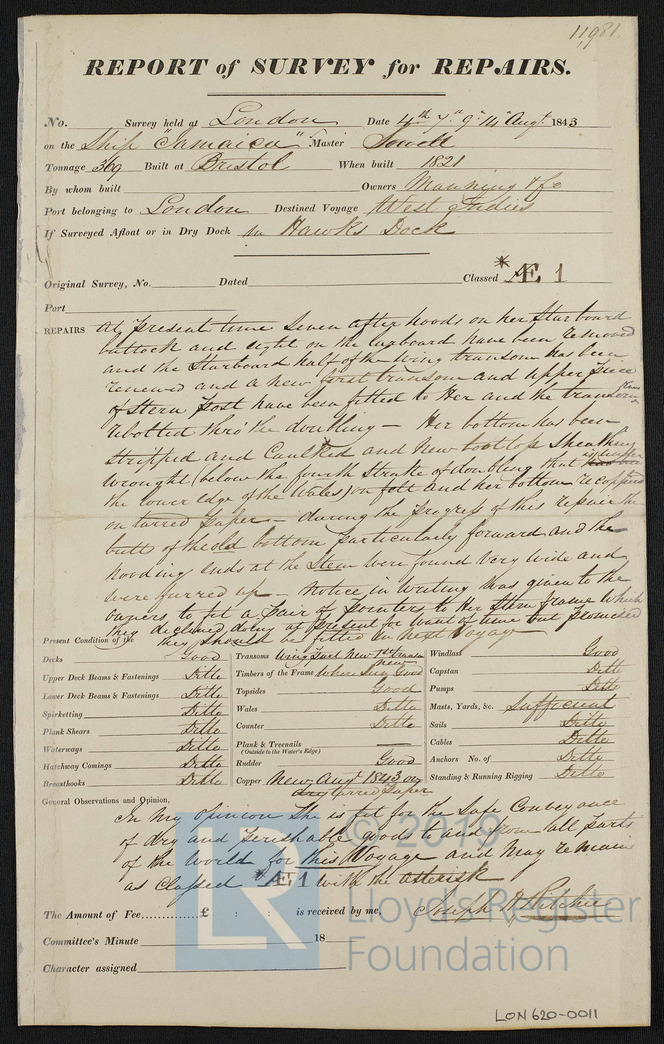 11981
REPORT of SURVEY for REPAIRS.
No. Survey held at London Date 4th 7th 9th 14th Augt. 1843
on the Ship "Jamaica" Master Sewell
Tonnage 369 Built at Bristol When built 1821
By whom built Owners Manning & Co
Port belonging to London Destined Voyage West Indies
If Surveyed Afloat or in Dry Dock in Hawks Dock
Original Survey, No. Dated Classed *Æ 1
Port
REPAIRS At present time Seven after hoods on her Starboard
buttock and eight on the larboard have been removed
and the Starboard half of the Wing transom has been
renewed and a new first transom and upper piece
of Stern post have been fitted to Her and the transom
rebolted thro' the doubling — Her bottom has been
stripped and Caulked and New boottop Sheathing
wrought (below the fourth Strake of doubling that
the lower edge of the Wales) on felt and her bottom recoppered
on tarred paper — during the progress of this repair the
butts of the old bottom particularly forward and the
hooding ends at the Stem were found very wide and
were furred up — Notice in Writing was given to the
owners to fit a Pair of Pointers to Her Stern frame which
they declined doing at present for want of time but promised
they should be fitted on next Voyage
Present Condition of the
Decks Good
Upper Deck Beams & Fastenings Ditto
Lower Deck Beams & Fastenings Ditto
Spirketting Ditto
Plank Shears Ditto
Waterways Ditto
Hatchway Comings Ditto
Breasthooks Ditto
Transoms Wing part New 1st transom new
Timbers of the Frame where seen Good
Topsides Good
Wales Ditto
Counter Ditto
Plank & Treenails —
(Outside to the Water's Edge)
Rudder Good
Copper New Augt 1843 on
tarred Paper
Windlass Good
Capstan Ditto
Pumps Ditto
Masts, Yards, &c. Sufficient
Sails Ditto
Cables Ditto
Anchors No. of Ditto
Standing & Running Rigging Ditto
General Observations and Opinion,
In my opinion She is fit for the Safe Conveyance
of dry and perishable goods to and from all parts
of the World for this Voyage and May remain
as Classed *Æ 1 with the asterisk
The Amount of Fee............£ : : is received by me, Joseph H Ritchie
Committee's Minute 18
Character assigned
© 2019
LR
Lloyd's Register
Foundation
LON620-0011